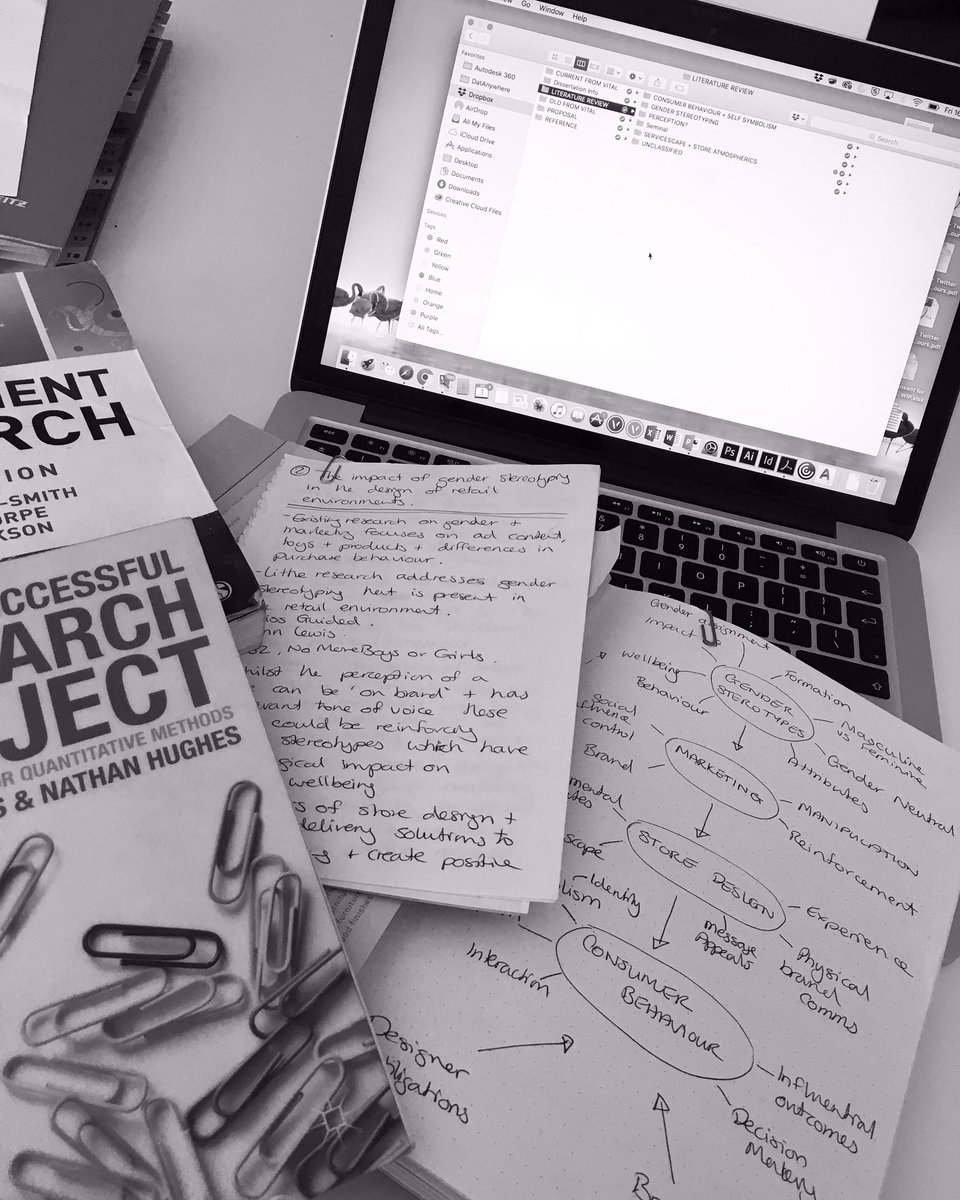 Go Window Help
LITERATURE REVIEW
Search
Favorites
Autodesk 360
DatAnywhere
Dropbox
AirDrop
All My Files
iCloud Drive
Applications
Desktop
Documents
Downloads
Creative Cloud Files
Devices
Tags
Red
Green
Yellow
Blue
Home
Orange
Purple
All Tags...
CURRENT FROM VITAL
Dissertation info
LITERATURE REVIEW
OLD FROM VITAL
PROPOSAL
REFERENCE
CONSUMER BEHAVIOUR + SELF SYMBOLISM
GENDER STEREOTYPING
PERCEPTION?
Seminal
SERVICESCAPE + STORE ATMOSPHERICS
UNCLASSIFIED
Twitter
...ours.pdf
Ps Ai Id
esc
I O P
MENT
RCH
ION
L-SMITH
ORPE
KSON
UCCESSFUL
ARCH
JECT
OR QUANTITATIVE METHODS
S & NATHAN HUGHES
② The impact of gender stereotyping
in the design of retail
environments.
- Existing research on gender +
marketing focuses on ad content,
toys + products + differences in
purchase behaviour.
- Little research addresses gender
stereotyping that is present in
retail environment.
Guided.
nn Lewis.
, No More Boys or Girls.
hilst the perception of a
can be 'on brand' + has
evant tone of voice these
could be reinforcing
stereotypes which have
gical impact on
wellbeing
rs of store design +
delivery solutions to
g + create positive
Gender assignment
Impact
Formation
Wellbeing
Behaviour
GENDER
STEROTYPES
Masculine
vs Feminine
Gender Neutral
Attributes
Social
influence
control
Brand
MARKETING
MANIPULATION
Reinforcement
mental
STORE DESIGN
scape
Experience
Physical
brand
comms
message
Appeals
Identity
lism
Interaction
CONSUMER
BEHAVIOUR
Influential
outcomes
Decision
Making
Designer